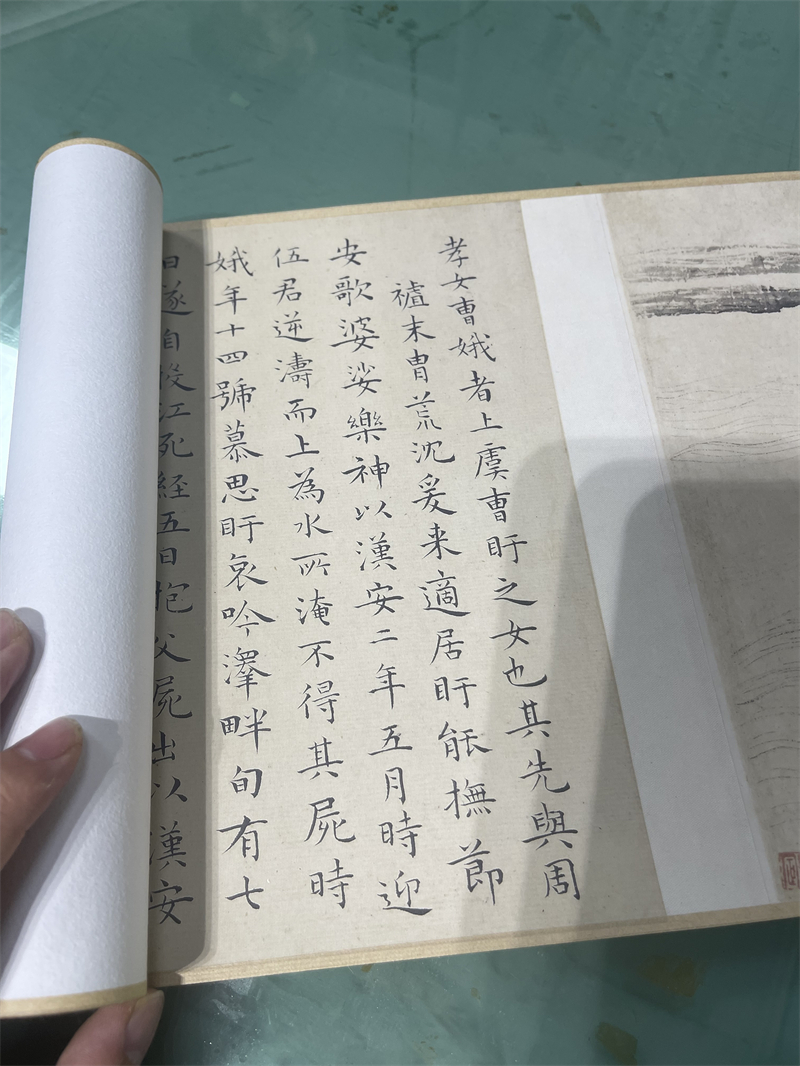 孝女曹娥者上虞曹盱之女也其先與周
禮末胄荒沈爰来適居盱能撫節
安歌婆娑樂神以漢安二年五月時迎
伍君逆濤而上為水所淹不得其屍時
娥年十四號慕思盱哀吟澤畔旬有七
日遂自投江死経五日抱父屍出以漢安